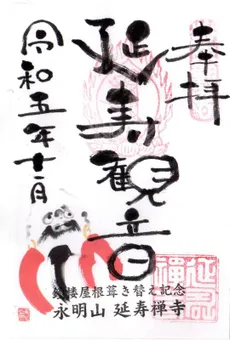 奉拝
延寿観音
令和五年十二月
鐘楼屋根葺き替え記念
永明山 延寿禅寺